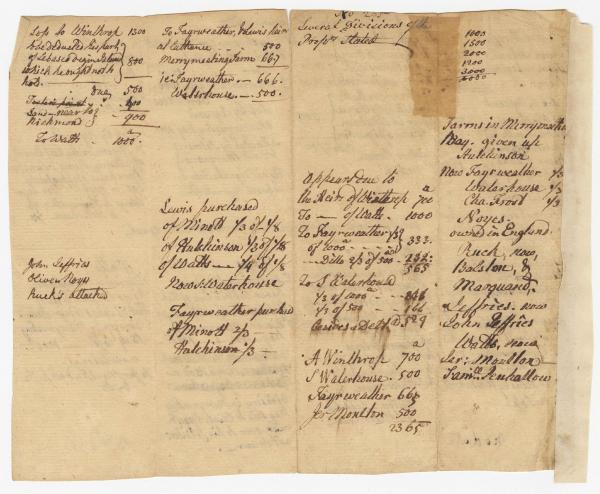 Loss to Winthrop 1300
to be deducted his part
of Lebascodegin Island 800
which he ought not
hold.
due, 500
Lands near 
Richmond 900
To Watts 1000
John Jeffries
Oliver Noyes
Ruck's attached
To Fayrweather, & Lewis heirs
at Cathance 500
Merrymeeting Farm 667
ie: Fayrweather 666
Waterhouse 500.
Lewis purchased
of Minott 1/3 of 1/8
of Hutchinson 1/3 of 1/8
of Watts 1/4 of 1/8
Now S. Waterhouse
Fayrweather purchased
of Minott 2/3
Hutchinson 1/3
No
Several Divicions of the
Prop.rs Stated
1000
1500
2000
1200
3000
Appears due to
the Heirs of Winthrop 700
To of Watts 1000
To Fayrweather 1/3
of 1000 333.
Ditto 2/3 of 500 232.
565
To S Waterhouse
1/3 of 1000
1/3 of 500 166
529
A Winthrop 700
S Waterhouse 500
Fayrweather 665
Jer Moulton 500
2365
Farms in Merrymeeting
Bay. given up
Hutchinson
Now Fayrweather 1/3
Waterhouse 1/3
Cha. Frost 1/3
Noyes
owned in England.
Ruck, now,
Balston, &
Marquand,
Jeffries. now
John Jeffries
Watts, now
Jer: Moulton
Sam.ll Penhallow